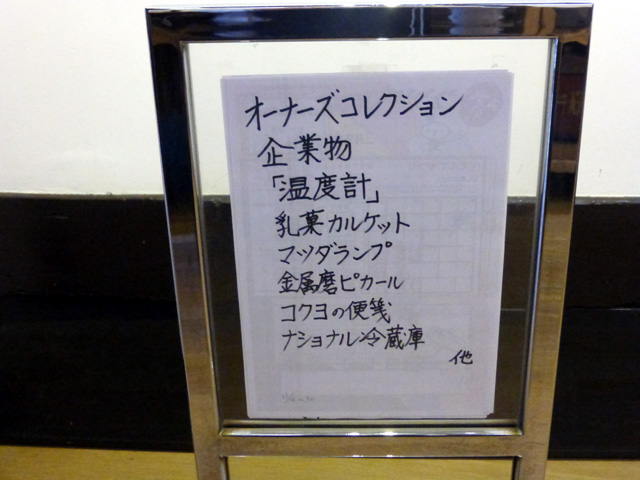 オーナーズコレクション
企業物
「温度計」
乳菓カルケット
マツダランプ
金属磨ピカール
コクヨの便箋
ナショナル冷蔵庫
他